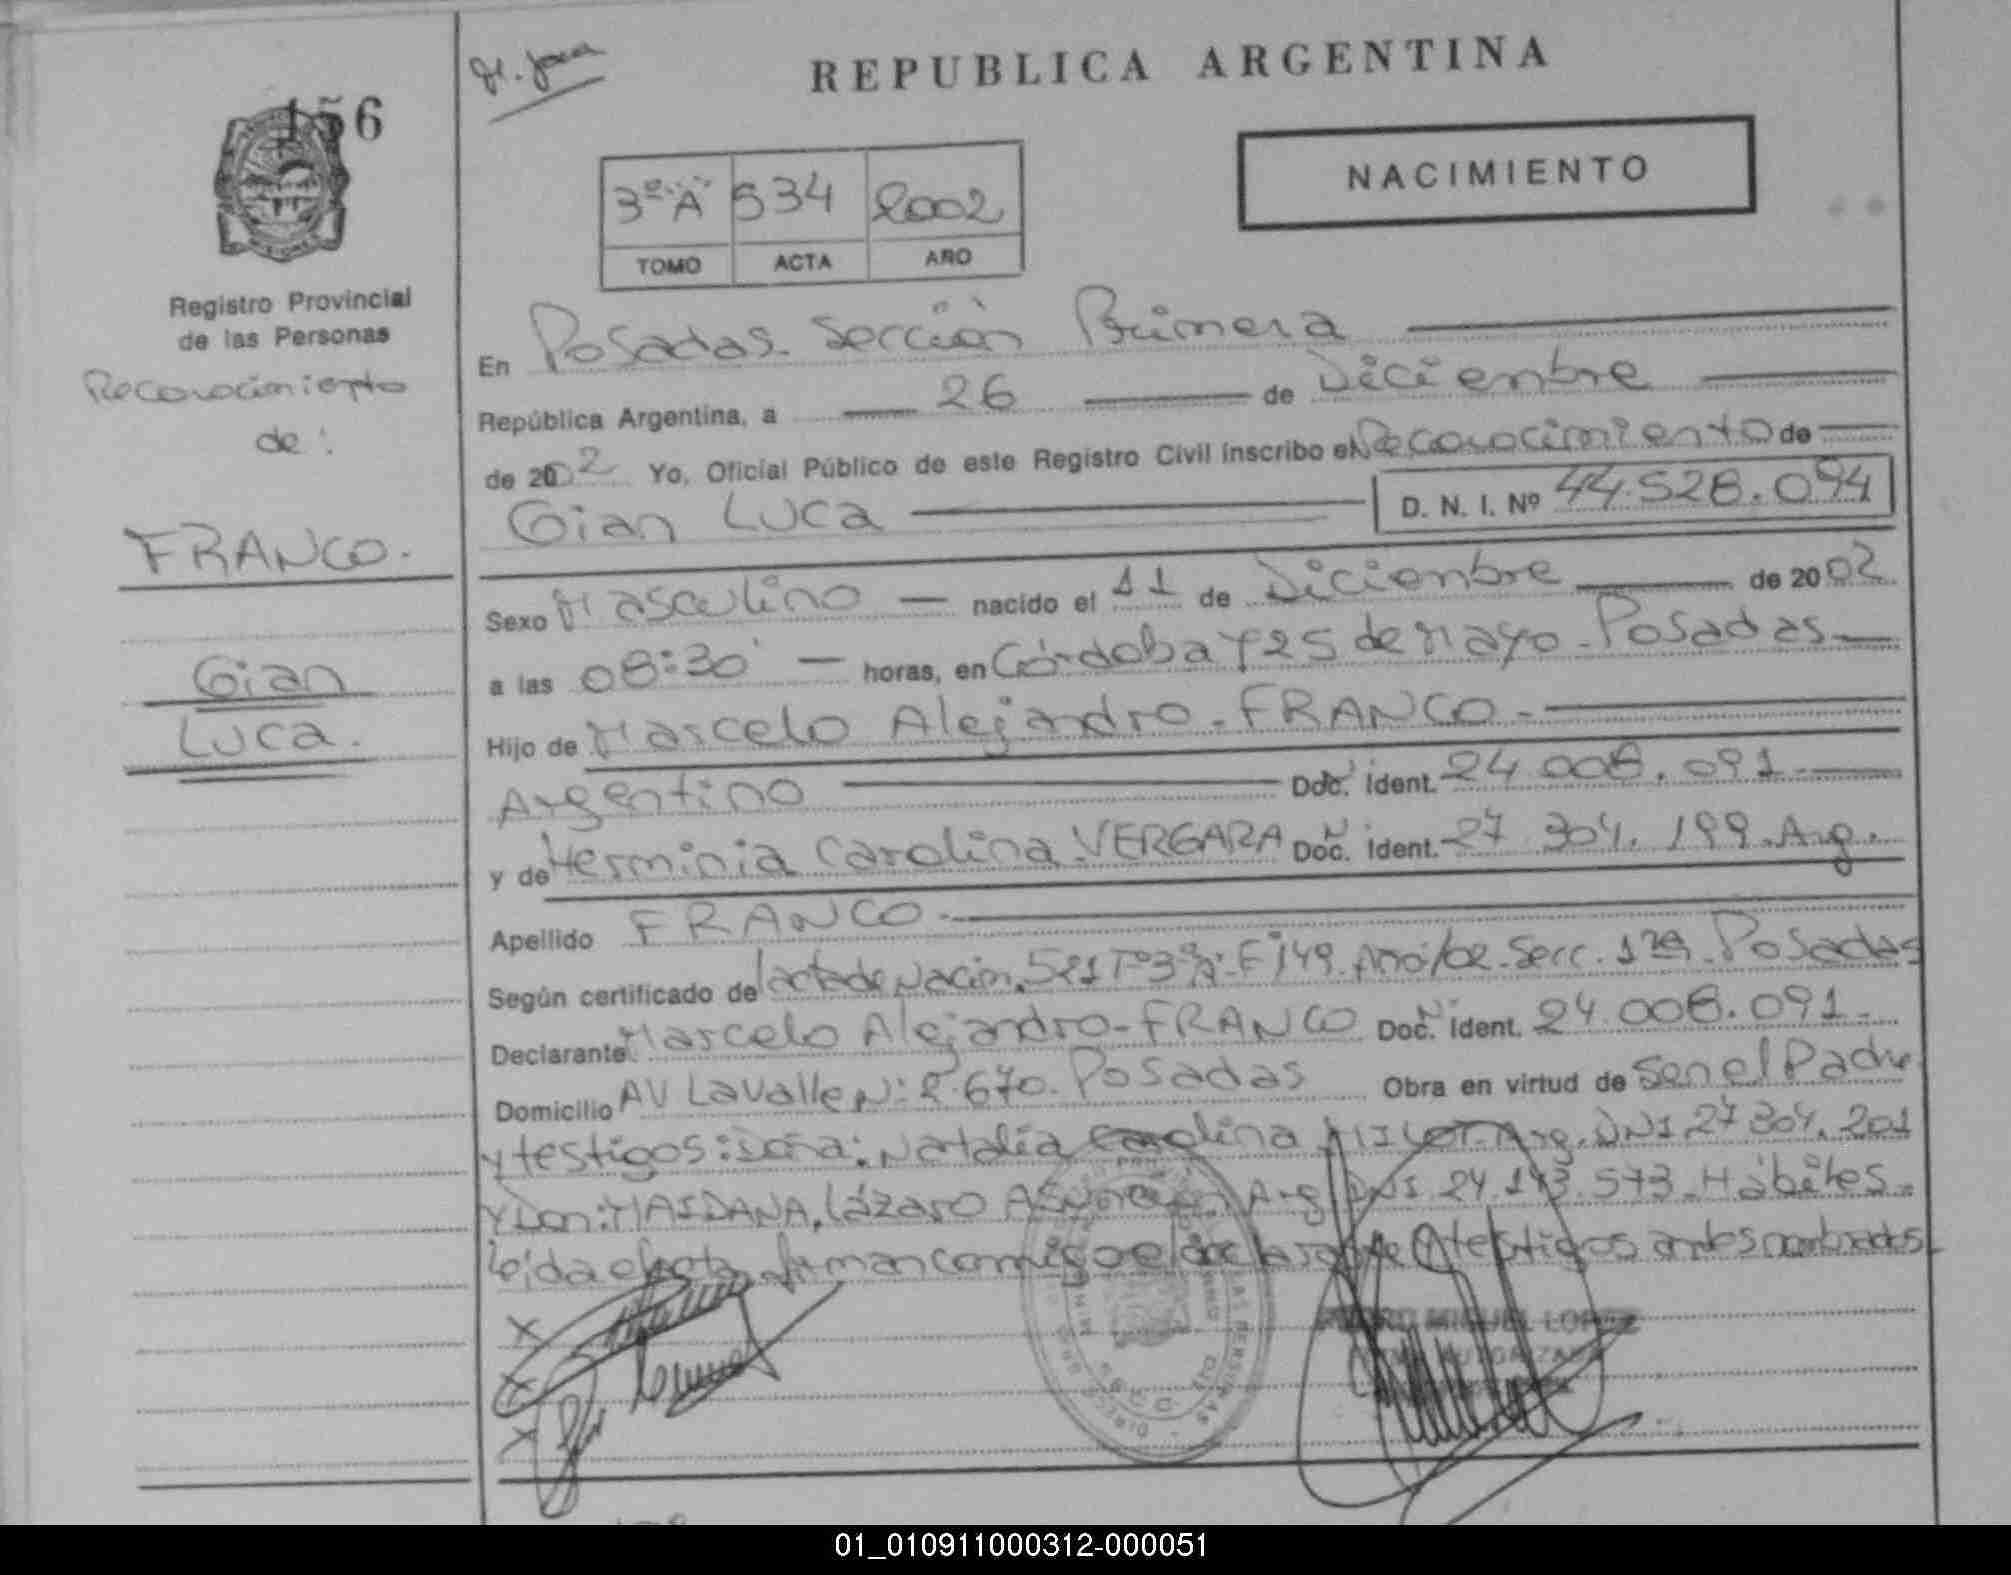 156
REPUBLICA ARGENTINA
NACIMIENTO
3º "A" 534 2002
TOMO ACTA AÑO
Registro Provincial
de las Personas
Reconocimiento
de:
FRANCO.
Gian
Luca.
En Posadas. Sección Primera
República Argentina, a 26 de Diciembre
de 2002 Yo, Oficial Público de este Registro Civil inscribo el Reconocimiento de
Gian Luca D. N. I. Nº 44.528.094
Sexo Masculino nacido el 11 de Diciembre de 2002
a las 08:30' horas, en Córdoba y 25 de Mayo - Posadas
Hijo de Marcelo Alejandro - FRANCO -
Argentino Doc. Ident. 24.008.091 -
y de Herminia Carolina VERGARA Doc. Ident. 27.304.199. Arg.
Apellido FRANCO -
Según certificado de acta de Nacim. 521 Tº 3º "A" Fº 149. Año/02. Secc. 1ra. Posadas
Declarante Marcelo Alejandro - FRANCO Doc. Ident. 24.008.091 -
Domicilio AV Lavalle Nº 2.670. Posadas Obra en virtud de Ser el Padre
y testigos: Doña: Natalia Arg. DNI 27.304.201
y Don: MAIDANA, Lázaro Arg. DNI 24.143.573. Hábiles.
Leída el acta firman conmigo el declarante y testigos antes nombrados
PEDRO MIGUEL LOPEZ
01_010911000312-000051